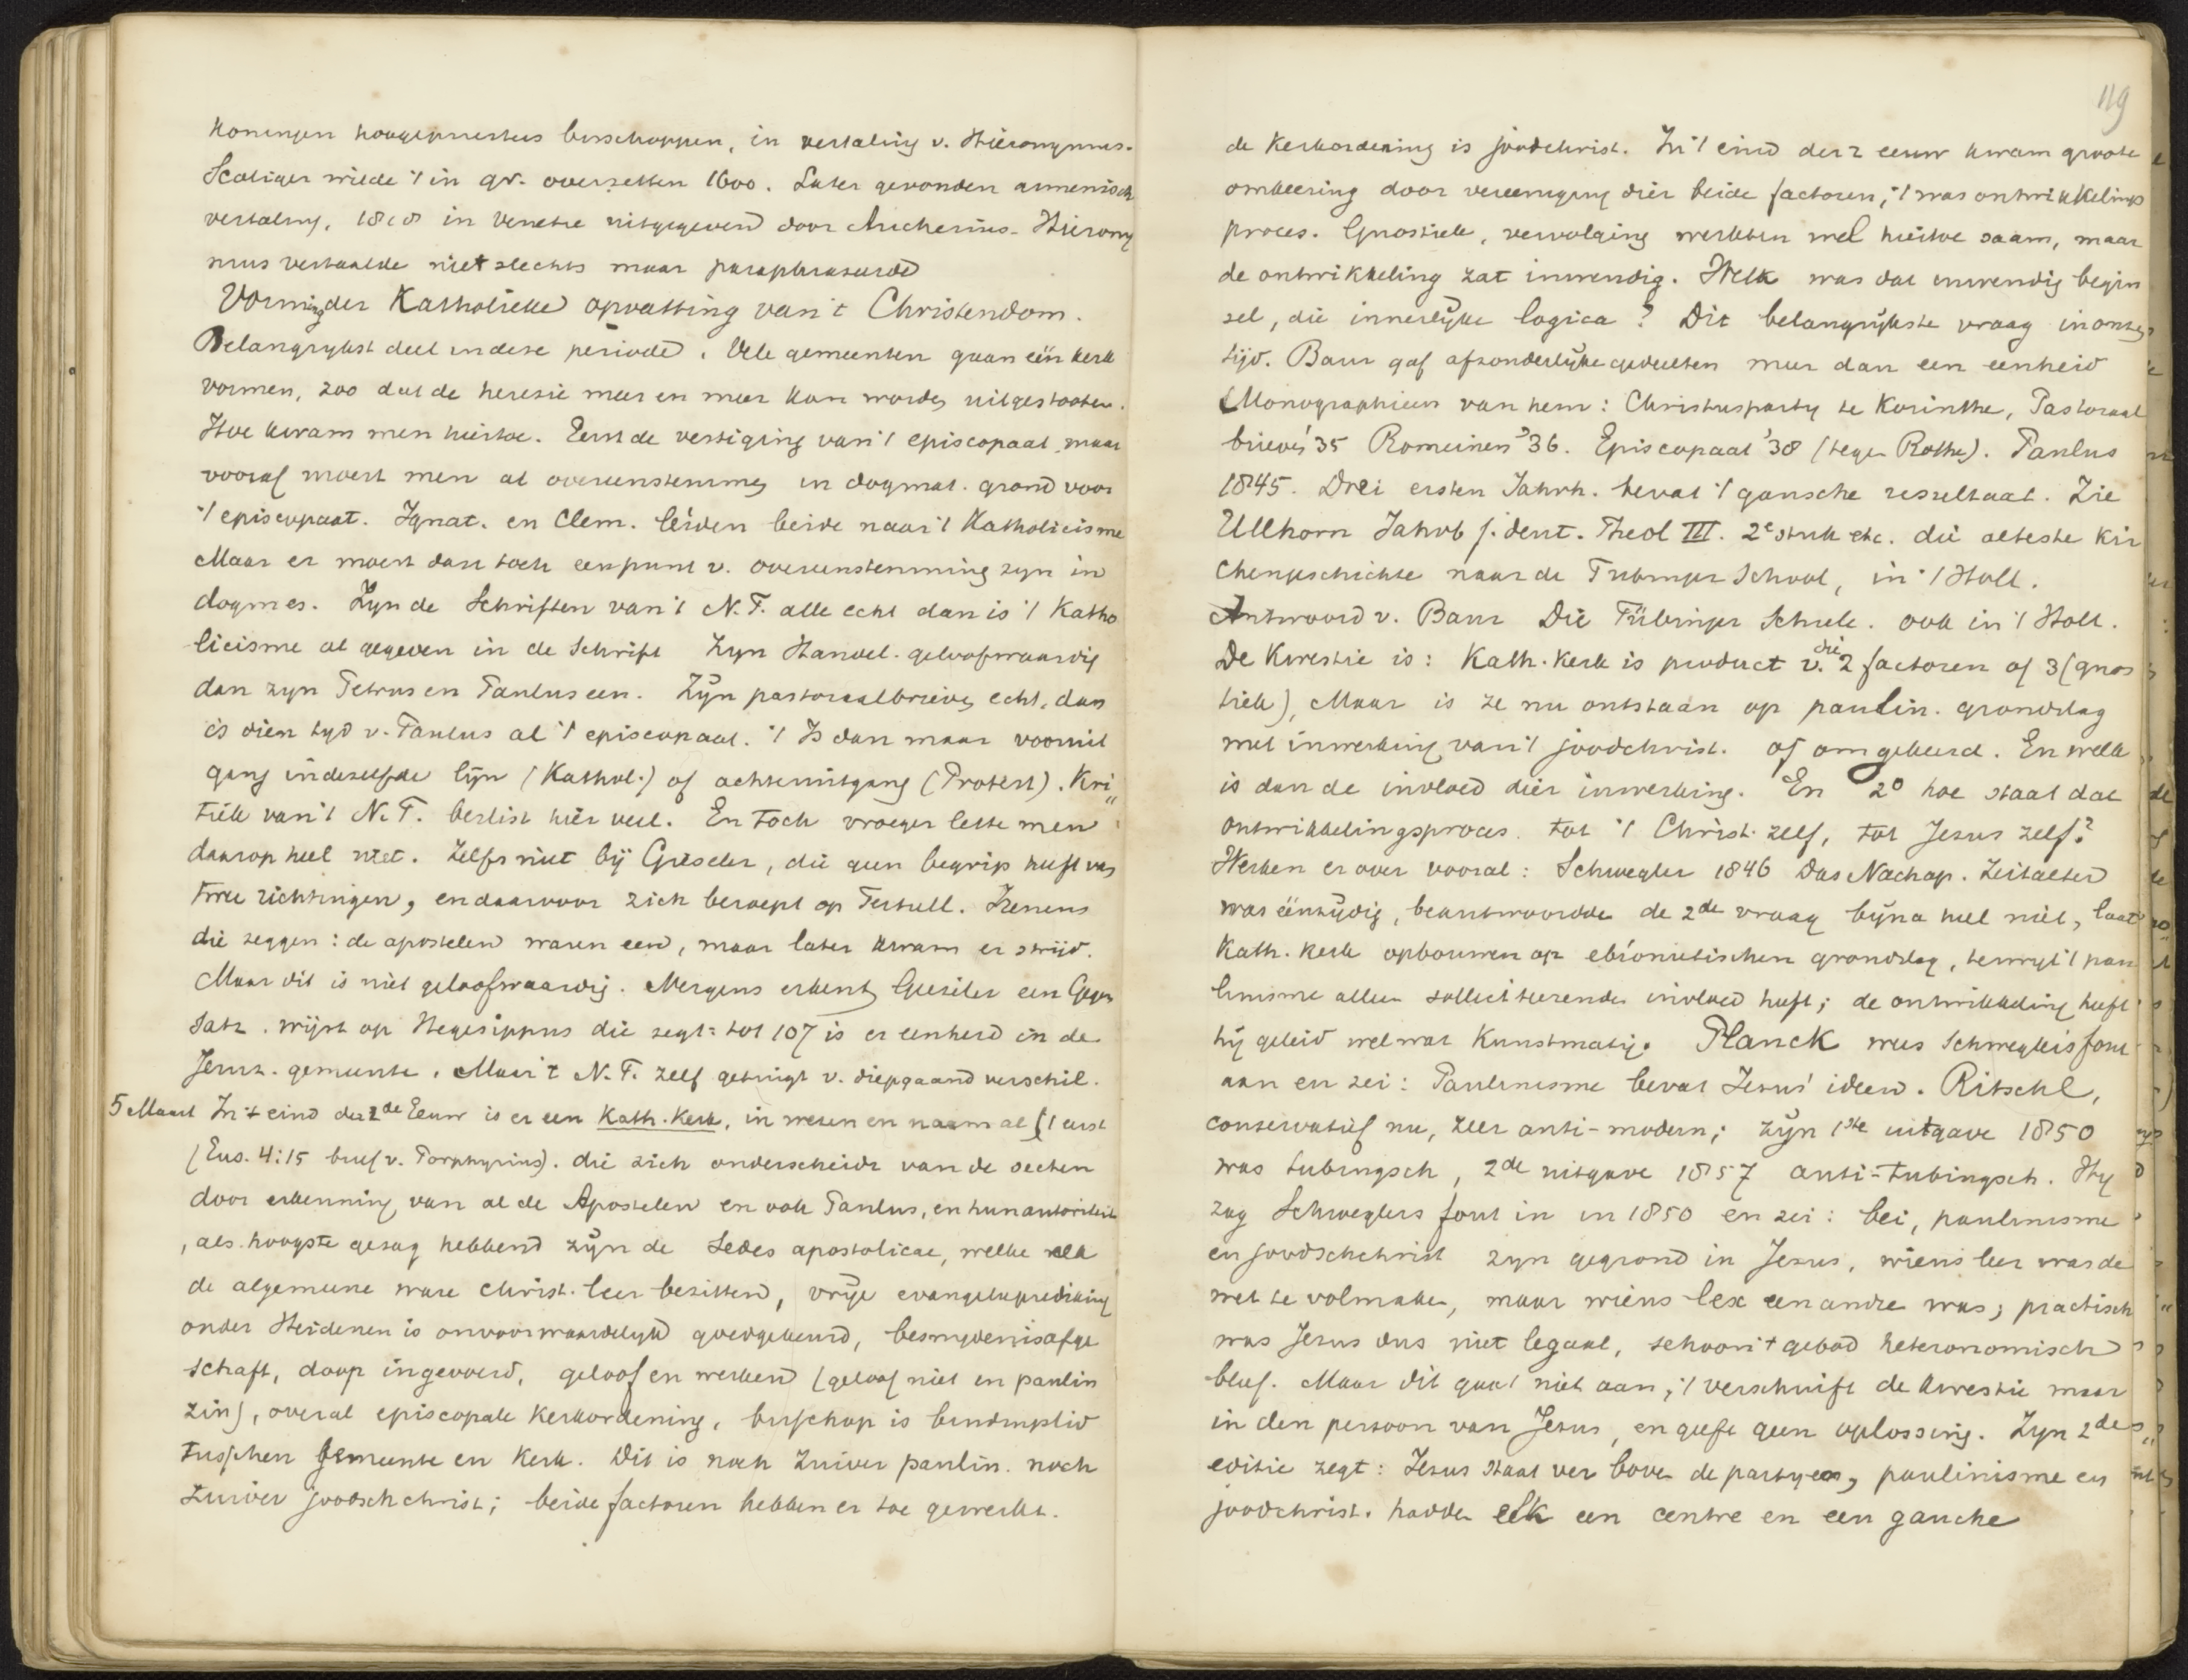 Koningen hoogepriesters bisschoppen, in vertaling v. Hieronymus.
Scaliger wilde 't in gr. overzetten 1600. Later gevonden armenisch
vertaling, 1818 in Venetie uitgegeven door Aucherius. Hierony
mus vertaalde niet slechts maar paraphraseerde
Vorming der Katholieke opvatting van 't Christendom.
Belangrykst deel in deze periode. Vele gemeenten gaan één kerk
vormen, zoo dat de heresie meer en meer kan worden uitgestooten.
Hoe kwam men hiertoe. Eerst de vestiging van 't episcopaat, maar
vooraf moest men al overeenstemming in dogmat. grond voor
't episcopaat. Ignat. en Clem. leiden beide naar 't Katholicisme
Maar er moest dan toch een punt v. overeenstemming zyn in
dogmes. Zyn de Schriften van 't N.T. alle echt dan is 't Katho
licisme al gegeven in de Schrift Zyn Handel. geloofwaardig
dan zyn Petrus en Paulus een. Zÿn pastoraalbrieven echt, dan
is dien tyd v. Paulus al 't episcopaat. 't Is dan maar vooruit
gang in dezelfde lÿn (Kathol.) of achteruitgang (Protest). Kri„
tiek van 't N.T. beslist hier veel. En toch vroeger lette men
daarop heel niet. Zelfs niet bÿ Gieseler, die geen begrip heeft van
twee richtingen, en daarvoor zich beroept op Tertull. Irenaeus
die zeggen: de apostelen waren een, maar later kwam er strijd.
Maar dit is niet geloofwaardig. Nergens erkent Gieseler een Gegen
satz. wijst op Hegesippus die zegt: tot 107 is er eenheid in de
Jeruz. gemeente. Maar 't N.T. zelf getuigt v. diepgaand verschil.
5 Maart In 't eind der 2de Eeuw is er een Kath. Kerk, in wezen en naam al ('t eerst
(Eus. 4:15 brief v. Porphyrius). die zich onderscheidt van de secten
door erkenning van al de Apostelen en ook Paulus, en hun autoriteit
, als hoogste gezag hebbend zÿn de Sedes apostolicae, welke elk
de algemeene ware christ. leer bezitten, vrÿe evangelieprediking
onder Heidenen is onvoorwaardelyk goedgekeurd, besnydenis afge
schaft, doop ingevoerd, geloof en werken (geloof niet in paulin
zin), overal episcopale kerkordening, bisschop is bindmiddel
tusschen gemeente en Kerk. Dit is noch zuiver paulin. noch
zuiver joodschchrist; beide factoren hebben er toe gewerkt.
119
de Kerkordening is joodchrist. In 't eind der 2 eeuw kwam groote
omkeering door vereeniging dier beide factoren, 't was ontwikkelings
proces. Gnostiek, vervolging werkten wel hiertoe saam, maar
de ontwikkeling zat inwendig. Welk was dat inwendig begin
sel, die innerlÿke logica? Dit belangrÿkste vraag in onzen
tijd. Baur gaf afzonderlÿke gedeelten meer dan een eenheid
(Monographieen van hem: Christusparty te Korinthe, Pastoraal
brieven '35 Romeinen '36. Episcopaat '38 (tegen Rothe). Paulus
1845. Drei ersten Jahrh. bevat 't gansche resultaat. Zie
Ullhorn Jahrb f. deut. Theol III. 2e stuk etc. die alteste Kir
chengeschichte naar de Tubinger School, in 't Holl.
Antwoord v. Baur Die Tübinger Schule. ook in 't Holl.
De Kwestie is: Kath. Kerk is product v. die 2 factoren of 3 (gnos
tiek), Maar is ze nu ontstaan op paulin. grondslag
met inwerking van 't joodchrist. of omgekeerd. En welk
is dan de invloed dier inwerking. En 2o hoe staat dat
ontwikkelingsproces tot 't Christ. zelf, tot Jezus zelf?
Werken er over vooral: Schwegler 1846 Das Nachap. Zeitalter
was éénzÿdig, beantwoordde de 2de vraag bÿna heel niet, laat
Kath. Kerk opbouwen op ebionitischen grondslag, terwyl 't pau
linisme alleen solliciteerende invloed heeft; de ontwikkeling heeft
hij geleid wel wat Kunstmatig. Planck wees Schwegler's fout
aan en zei: Paulinisme bevat Jezus' ideen. Ritschl,
conservatief nu, zeer anti-modern; zÿn 1ste uitgave 1850
was tubingsch, 2de uitgave 1857 anti-tubingsch. Hy
zag Schweglers fout in in 1850 en zei: bei, paulinisme
en joodschchrist zyn gegrond in Jezus, wiens leer was de
wet te volmaken, maar wiens lex een andre was; practisch
was Jezus dus niet legaal, schoon 't gebod heteronomisch
bleef. Maar dit gaat niet aan, 't verschuift de kwestie maar
in den persoon van Jezus, en geeft geen oplossing. Zyn 2de
editie zegt: Jezus staat ver boven de partyen, paulinisme en
joodchrist. hadden elk een centre en een gauche